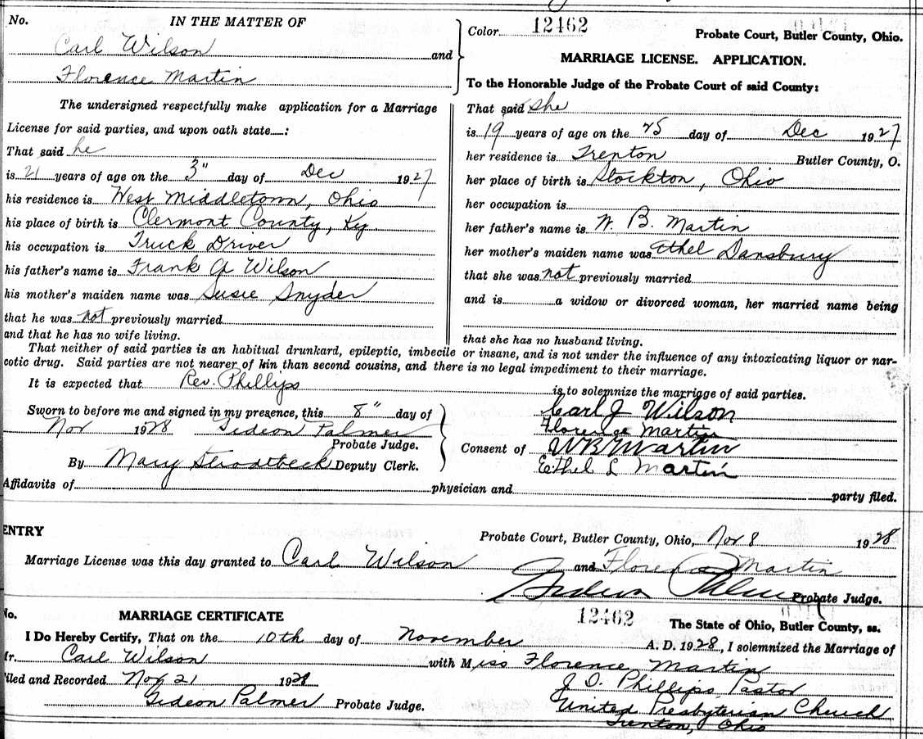 No. IN THE MATTER OF
Carl Wilson and
Florence Martin
The undersigned respectfully make application for a Marriage
License for said parties, and upon oath state :
That said he
is 21 years of age on the 3" day of Dec 1927
his residence is West Middletown, Ohio
his place of birth is Clermont County, Ky
his occupation is Truck Driver
his father's name is Frank A Wilson
his mother's maiden name was Susie Snyder
that he was not previously married
and that he has no wife living.
Color 12462 Probate Court, Butler County, Ohio.
MARRIAGE LICENSE. APPLICATION.
To the Honorable Judge of the Probate Court of said County:
That said She
is 19 years of age on the 25 day of Dec 1927
her residence is Trenton Butler County, O.
her place of birth is Stockton, Ohio
her occupation is
her father's name is W. B. Martin
her mother's maiden name was Ethel Dansbury
that she was not previously married
and is a widow or divorced woman, her married name being
that she has no husband living.
That neither of said parties is an habitual drunkard, epileptic, imbecile or insane, and is not under the influence of any intoxicating liquor or nar-
cotic drug. Said parties are not nearer of kin than second cousins, and there is no legal impediment to their marriage.
It is expected that Rev. Phillips is to solemnize the marriage of said parties.
Sworn to before me and signed in my presence, this 8" day of
Nov 1928 Gideon Palmer
Probate Judge.
By Mary Strodtbeck Deputy Clerk.
Carl J Wilson
Florence Martin
Consent of W B Martin
Ethel L Martin
Affidavits of physician and party filed.
ENTRY Probate Court, Butler County, Ohio, Nov 8 1928
Marriage License was this day granted to Carl Wilson and Florence Martin
Gideon Palmer Probate Judge.
No. MARRIAGE CERTIFICATE 12462 The State of Ohio, Butler County, ss.
I Do Hereby Certify, That on the 10th day of November A. D. 1928, I solemnized the Marriage of
Mr. Carl Wilson with Miss Florence Martin
Filed and Recorded Nov 21 1928 J. D. Phillips Pastor
Gideon Palmer Probate Judge. United Presbyterian Church
Trenton, Ohio